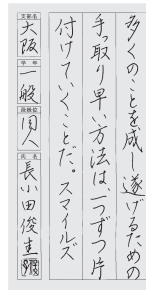 多くのことを成し遂げるための
手っ取り早い方法は、一つずつ片
付けていくことだ。スマイルズ
支部名 大阪
学年 一般
段級位 同人
氏名 長小田俊圭